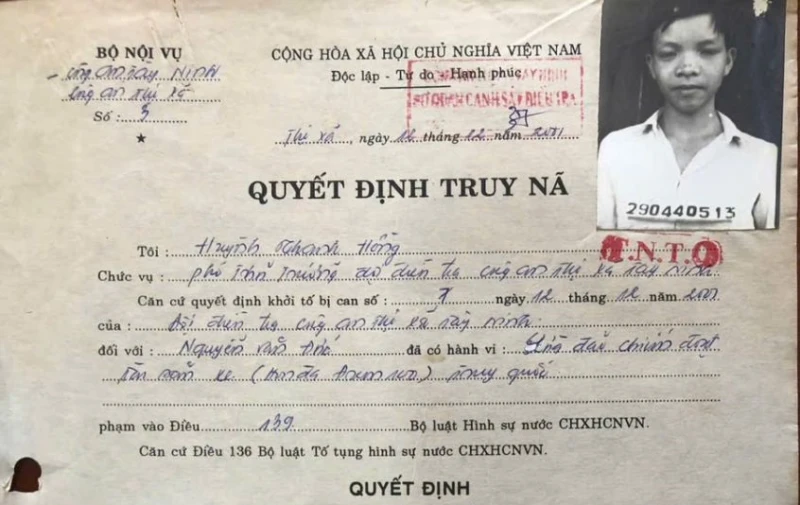 BỘ NỘI VỤ
Công an Tây Ninh
Công an thị xã
Số: 3
★
CỘNG HÒA XÃ HỘI CHỦ NGHĨA VIỆT NAM
Độc lập - Tự do - Hạnh phúc
CƠ QUAN CẢNH SÁT ĐIỀU TRA
Thị xã, ngày 12 tháng 12 năm 2001
290440513
T.N.T.
QUYẾT ĐỊNH TRUY NÃ
Tôi: Huỳnh Thanh Hồng
Chức vụ: phó trưởng công an thị xã Tây Ninh
Căn cứ quyết định khởi tố bị can số: ngày 12 tháng 12 năm 2001
của: Đội điều tra công an thị xã Tây Ninh
đối với: Nguyễn Văn đã có hành vi: lừa đảo chiếm đoạt
tài sản xe (Honda Dream) Trung Quốc
phạm vào Điều 139 Bộ luật Hình sự nước CHXHCNVN.
Căn cứ Điều 136 Bộ luật Tố tụng hình sự nước CHXHCNVN.
QUYẾT ĐỊNH